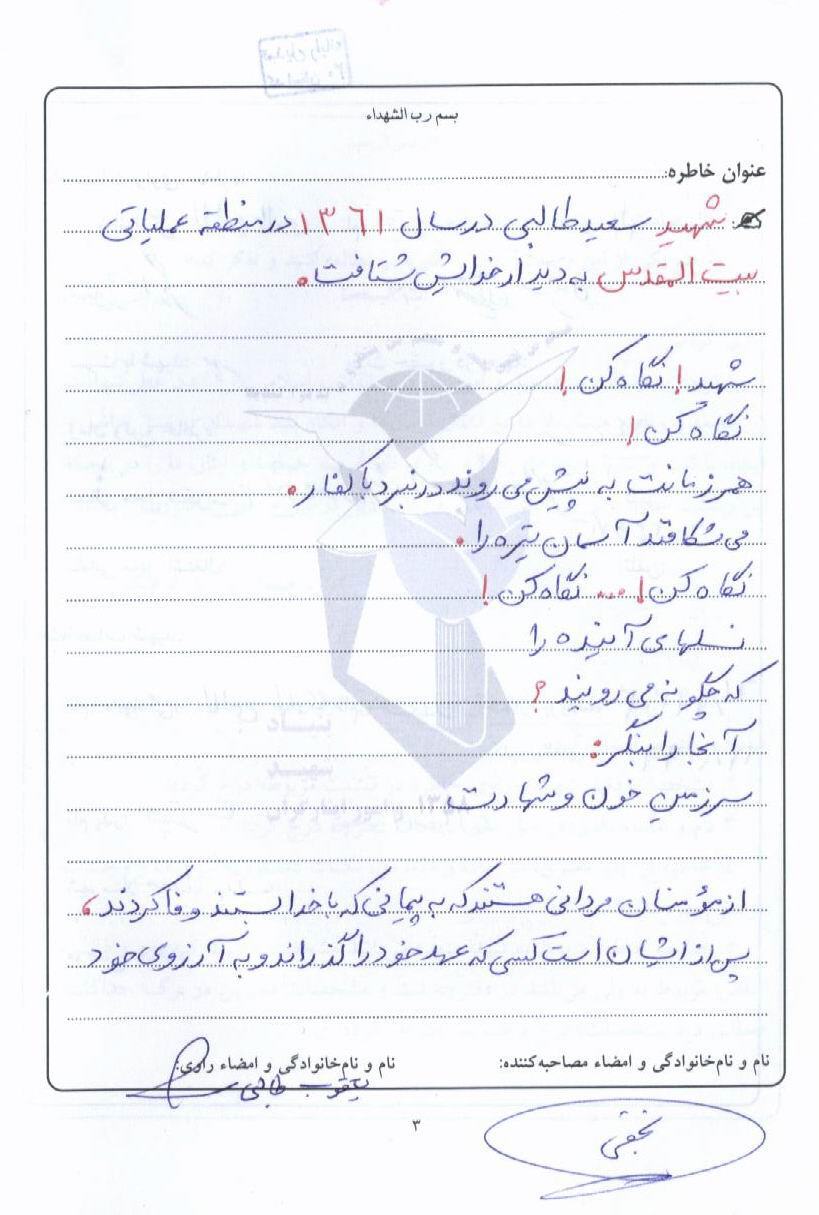 بسم رب الشهداء
عنوان خاطره:
شهید سعید طالبی در سال ۱۳۶۱ در منطقه عملیاتی
بیت المقدس به دیدار خدایش شتافت.
شهید! نگاه کن!
نگاه کن!
همرزمانت به پیش می روند در نبرد با کفار.
می شکافند آسمان تیره را.
نگاه کن! ... نگاه کن!
نسلهای آینده را
که چگونه می رویند؟
آنجا را بنگر:
سرزمین خون و شهادت
از مؤمنان مردانی هستند که به پیمانی که با خدا بستند وفا کردند،
پس از ایشان است کسی که عهد خود را گذراند و به آرزوی خود
نام و نام‌خانوادگی و امضاء مصاحبه‌کننده:
نام و نام‌خانوادگی و امضاء راوی:
یعقوب طالبی
نجفی
۳